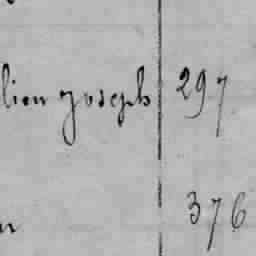 lien Joseph 297
376